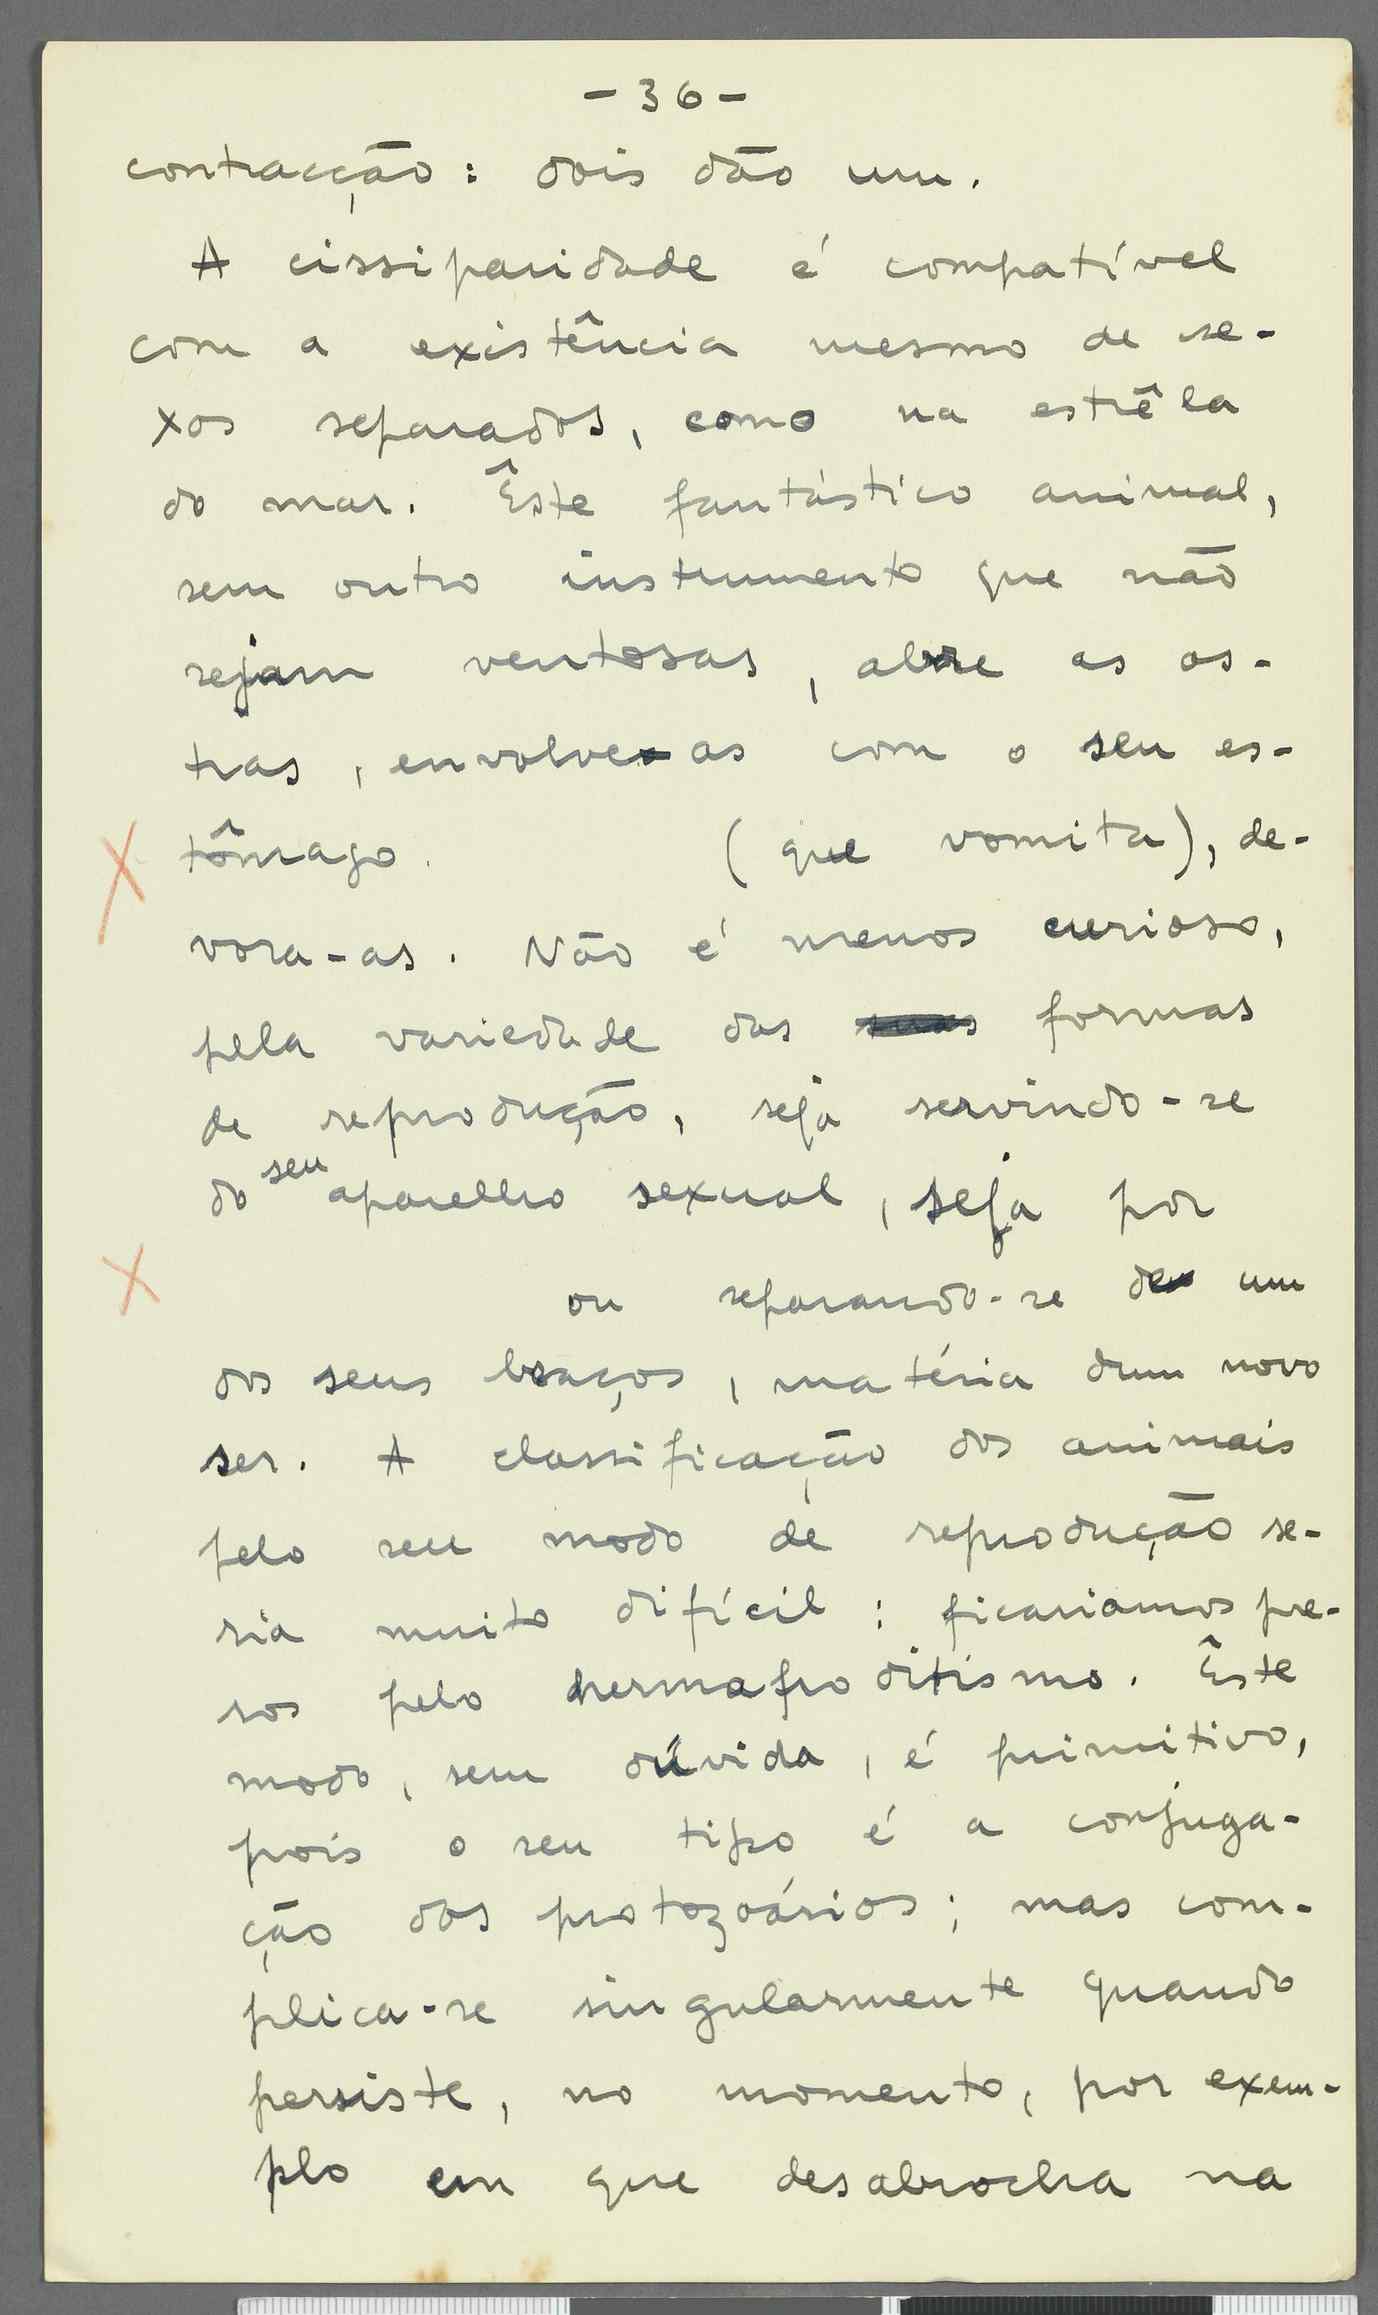 - 36 -
contracção: dois dão um.
A cissiparidade é compatível
com a existência mesmo de se-
xos separados, como na estrêla
do mar. Êste fantástico animal,
sem outro instrumento que não
sejam ventosas, abre as os-
tras, envolve-as com o seu es-
tômago (que vomita), de-
vora-as. Não é menos curioso,
pela variedade das suas formas
de reprodução, seja servindo-se
do seu aparelho sexual, seja por
ou separando-se de um
dos seus braços, matéria dum novo
ser. A classificação dos animais
pelo seu modo de reprodução se-
ria muito difícil: ficariamos pre-
sos pelo hermafroditismo. Êste
modo, sem dúvida, é primitivo,
pois o seu tipo é a conjuga-
ção dos protozoários; mas com-
plica-se singularmente quando
persiste, no momento, por exem-
plo em que desabrocha na